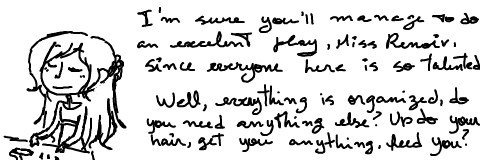 I'm sure you'll manage to do
an excelent play, Miss Renoir,
since everyone here is so talented
Well, everything is organized, do
you need anything else? Up do your
hair, get you anything, feed you?